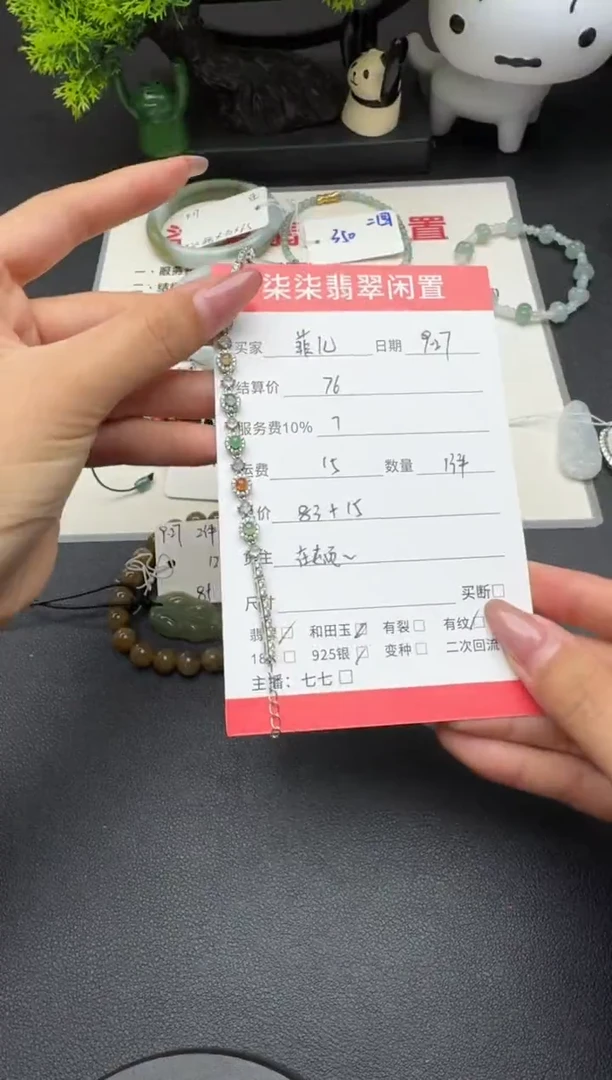 350 二圈
置
一、服务
二、结
柒柒翡翠闲置
买家 菲儿 日期 9.27
结算价 76
服务费10% 7
运费 15 数量 1件
价 83+15
主
尺寸 买断
翡翠 和田玉 有裂 有纹
18 925银 变种 二次回流
主播：七七
9.27 2件